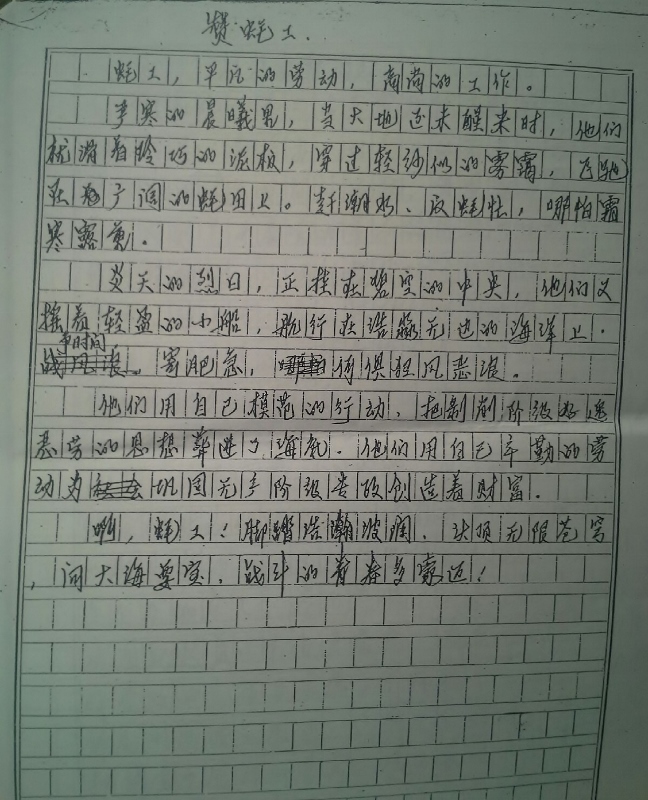 赞蚝工.
蚝工，平凡的劳动，高尚的工作。
严寒的晨曦里，当大地还未醒来时，他们
就滑着玲巧的泥板，穿过轻纱似的雾霭，飞驰
在广阔的蚝田上。赶潮水、夜蚝壮，哪怕霜
寒露重.
炎天的烈日，正挂在碧空的中央，他们又
摇着轻盈的小船，航行在浩淼无边的海洋上.
争时间，寄肥急，何惧狂风恶浪。
他们用自己模范的行动，把剥削阶级好逸
恶劳的思想葬进了海底.他们用自己辛勤的劳
动为巩固无产阶级专政创造着财富.
啊，蚝工！脚踏浩瀚波澜、头顶无限苍穹
，向大海要宝、战斗的青春多豪迈！